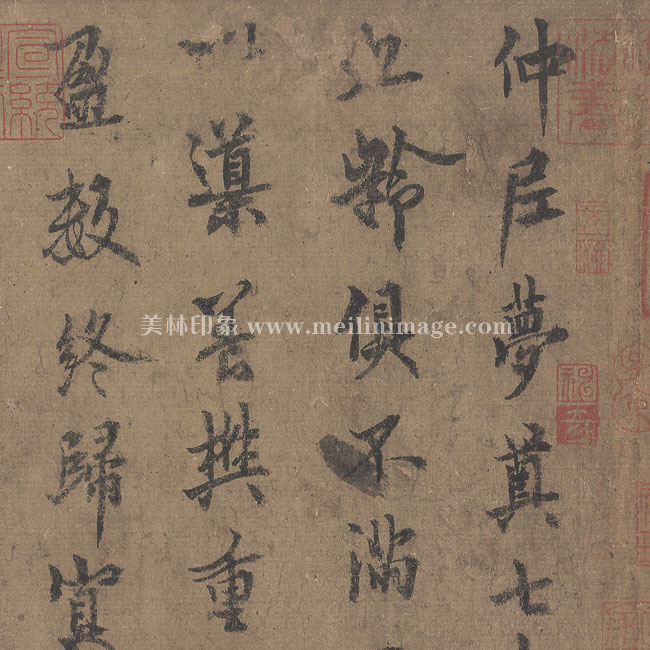 仲尼夢奠七
齡俱不滿
以導養樊重
盈數終歸冥
美林印象 www.meilinimage.com